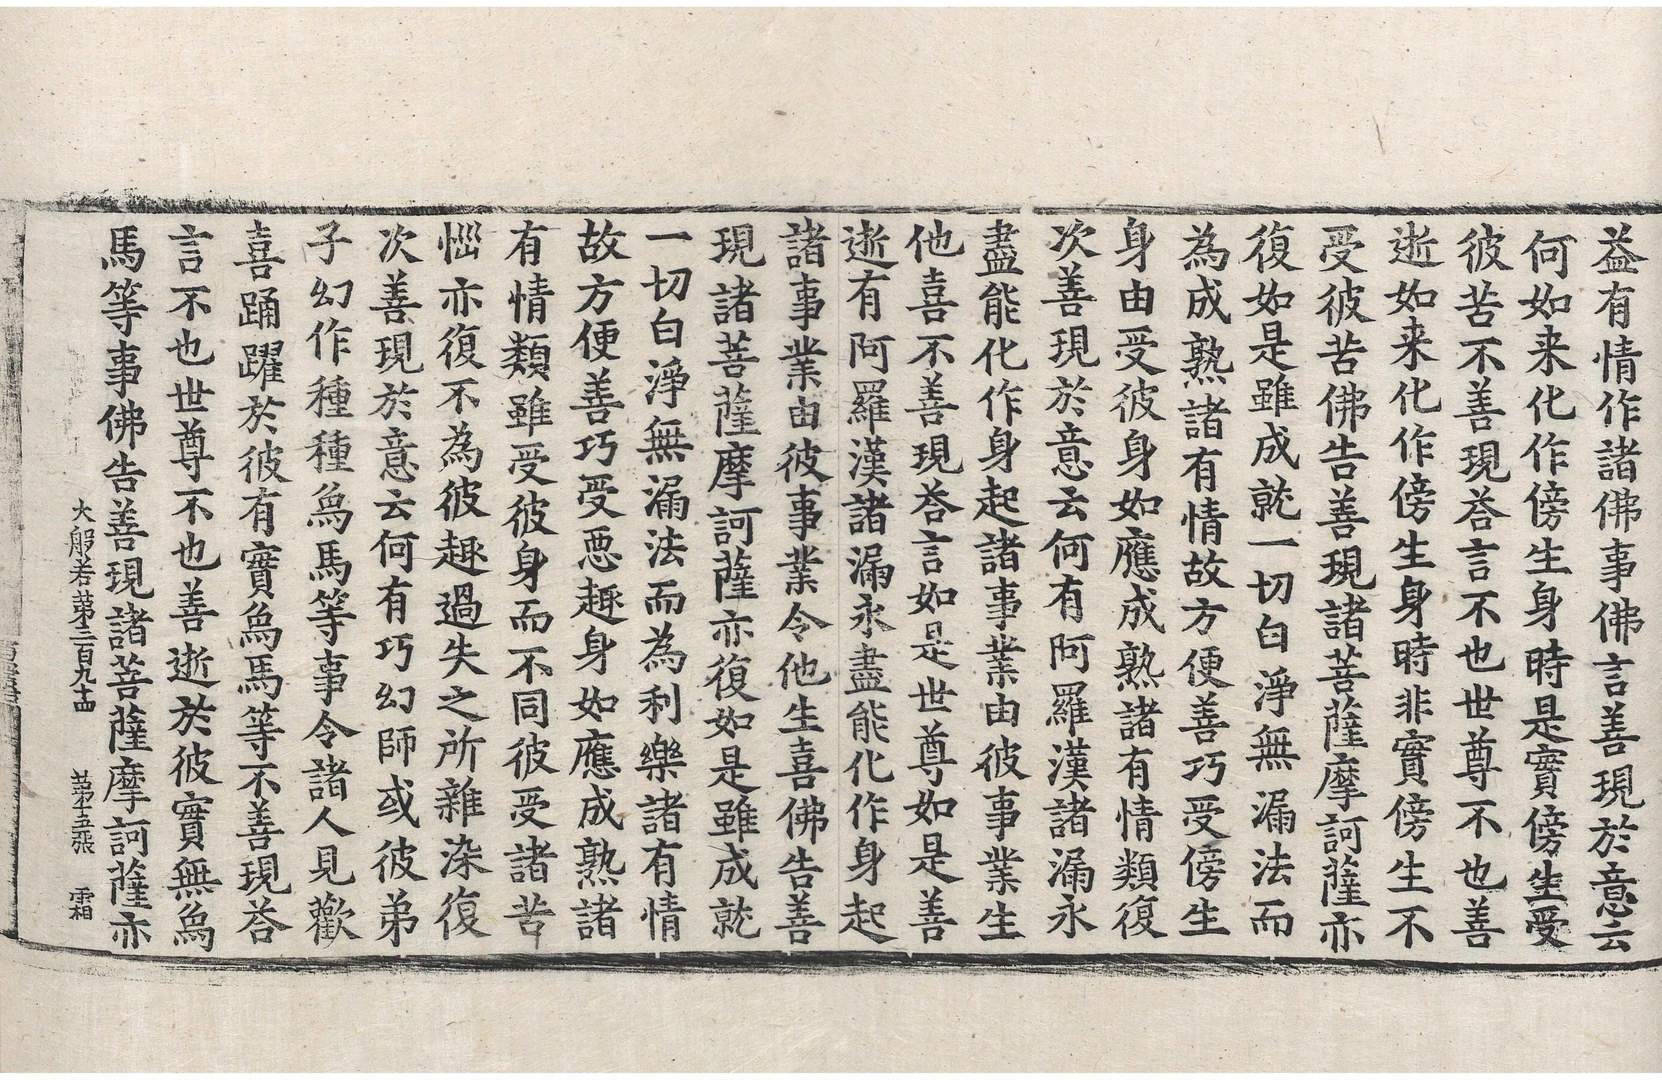 益有情作諸佛事佛言善現於意云
何如来化作傍生身時是實傍生受
彼苦不善現荅言不也世尊不也善
逝如来化作傍生身時非實傍生不
受彼苦佛告善現諸菩薩摩訶薩亦
復如是雖成就一切白淨無漏法而
為成熟諸有情故方便善巧受傍生
身由受彼身如應成熟諸有情類復
次善現於意云何有阿羅漢諸漏永
盡能化作身起諸事業由彼事業生
他喜不善現荅言如是世尊如是善
逝有阿羅漢諸漏永盡能化作身起
諸事業由彼事業令他生喜佛告善
現諸菩薩摩訶薩亦復如是雖成就
一切白淨無漏法而為利樂諸有情
故方便善巧受惡趣身如應成熟諸
有情類雖受彼身而不同彼受諸苦
惱亦復不為彼趣過失之所雜染復
次善現於意云何有巧幻師或彼弟
子幻作種種烏馬等事令諸人見歡
喜踊躍於彼有實烏馬等不善現荅
言不也世尊不也善逝於彼實無烏
馬等事佛告善現諸菩薩摩訶薩亦
大般若第三百九十四 第十五張 霜